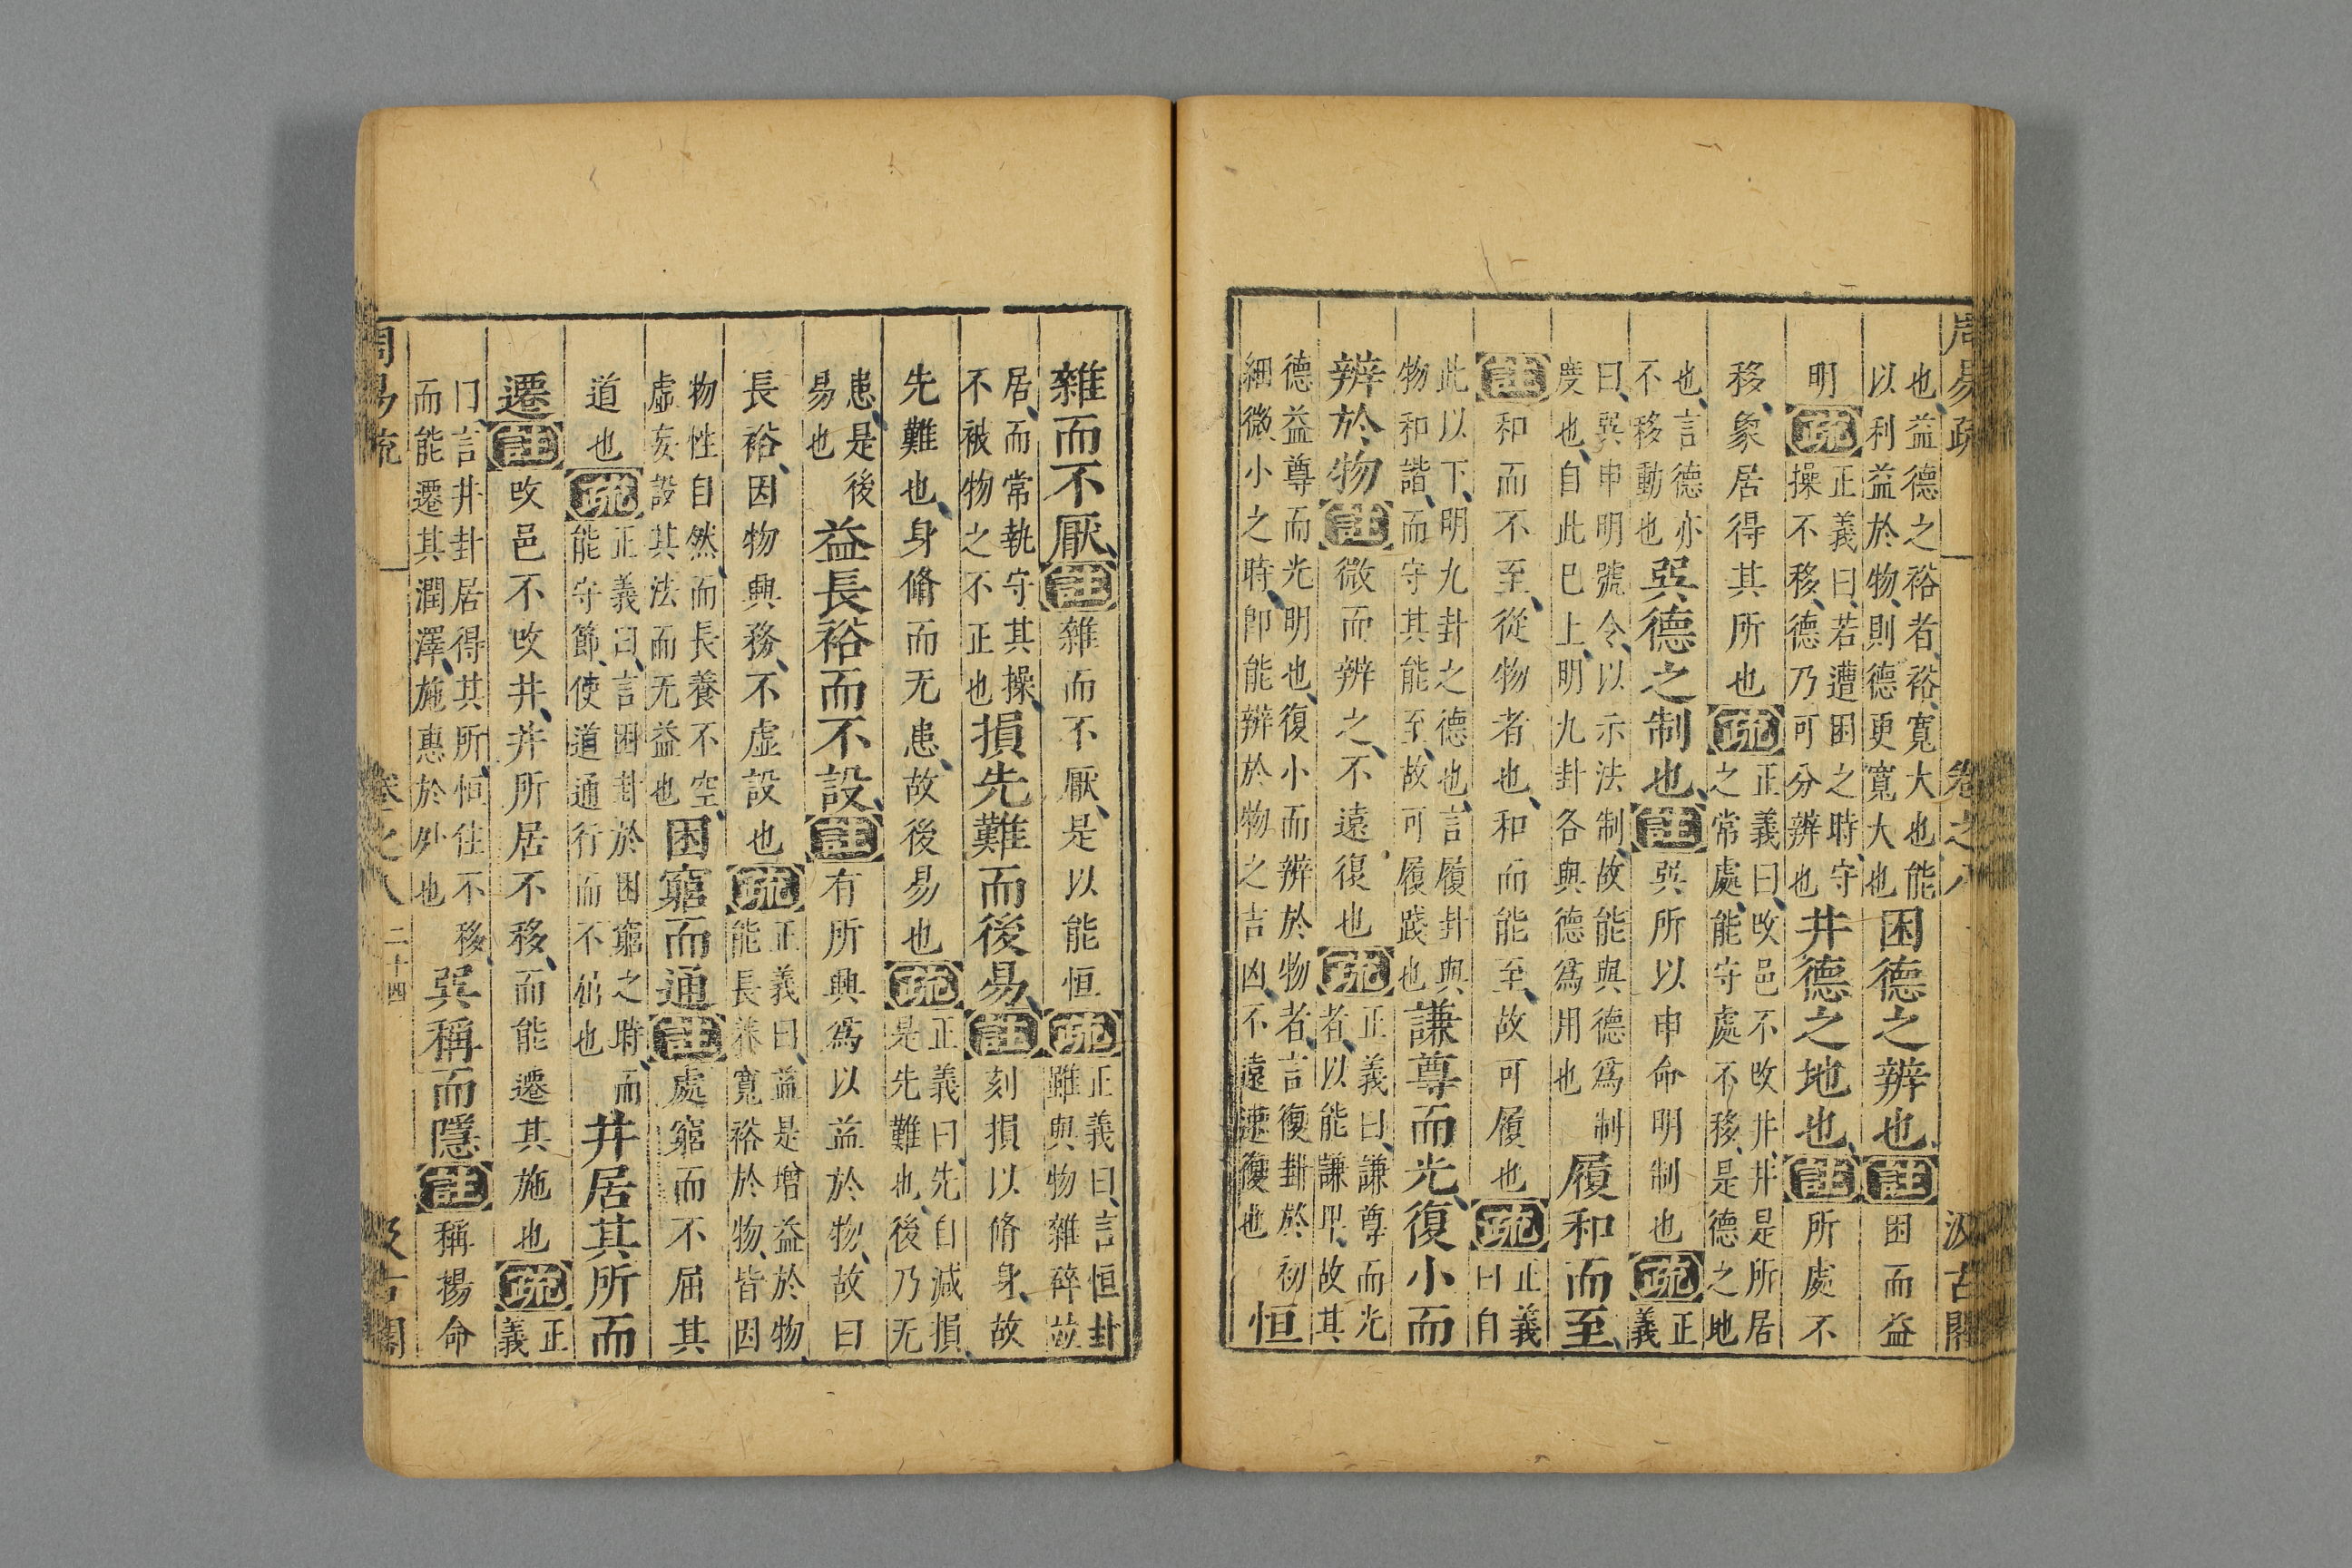 周易疏 卷之八 汲古閣
也益德之裕者裕寬大也能
以利益於物則德更寬大也困德之辨也註困而益
明疏正義曰若遭困之時守
操不移德乃可分辨也井德之地也註所處不
移象居得其所也疏正義曰改邑不改井井是所居
之常處能守處不移是德之地
也言德亦
不移動也巽德之制也註巽所以申命明制也疏正
義
曰巽申明號令以示法制故能與德爲制
度也自此巳上明九卦各與德爲用也履和而至
註和而不至從物者也和而能至故可履也疏正義
曰自
此以下明九卦之德也言履卦與
物和諧而守其能至故可履踐也謙尊而光復小而
辨於物註微而辨之不遠復也疏正義曰謙尊而光
者以能謙卑故其
德益尊而光明也復小而辨於物者言復卦於初
細微小之時卽能辨於物之吉凶不遠速復也恒
雜而不厭註雜而不厭是以能恒疏正義曰言恒卦
雖與物雜碎故
居而常執守其操
不被物之不正也損先難而後易註刻損以脩身故
先難也身脩而无患故後易也疏正義曰先自減損
是先難也後乃无
患是後
易也益長裕而不設註有所興爲以益於物故曰
長裕因物興務不虛設也疏正義曰益是增益於物
能長養寬裕於物皆因
物性自然而長養不空
虛妄設其法而无益也困窮而通註處窮而不屈其
道也疏正義曰言困卦於困窮之時而
能守節使道通行而不屈也井居其所而
遷註改邑不改井井所居不移而能遷其施也疏正
義
曰言井卦居得其所恒住不移
而能遷其潤澤施惠於外也巽稱而隱註稱揚命
周易疏 卷之八 二十四 汲古閣